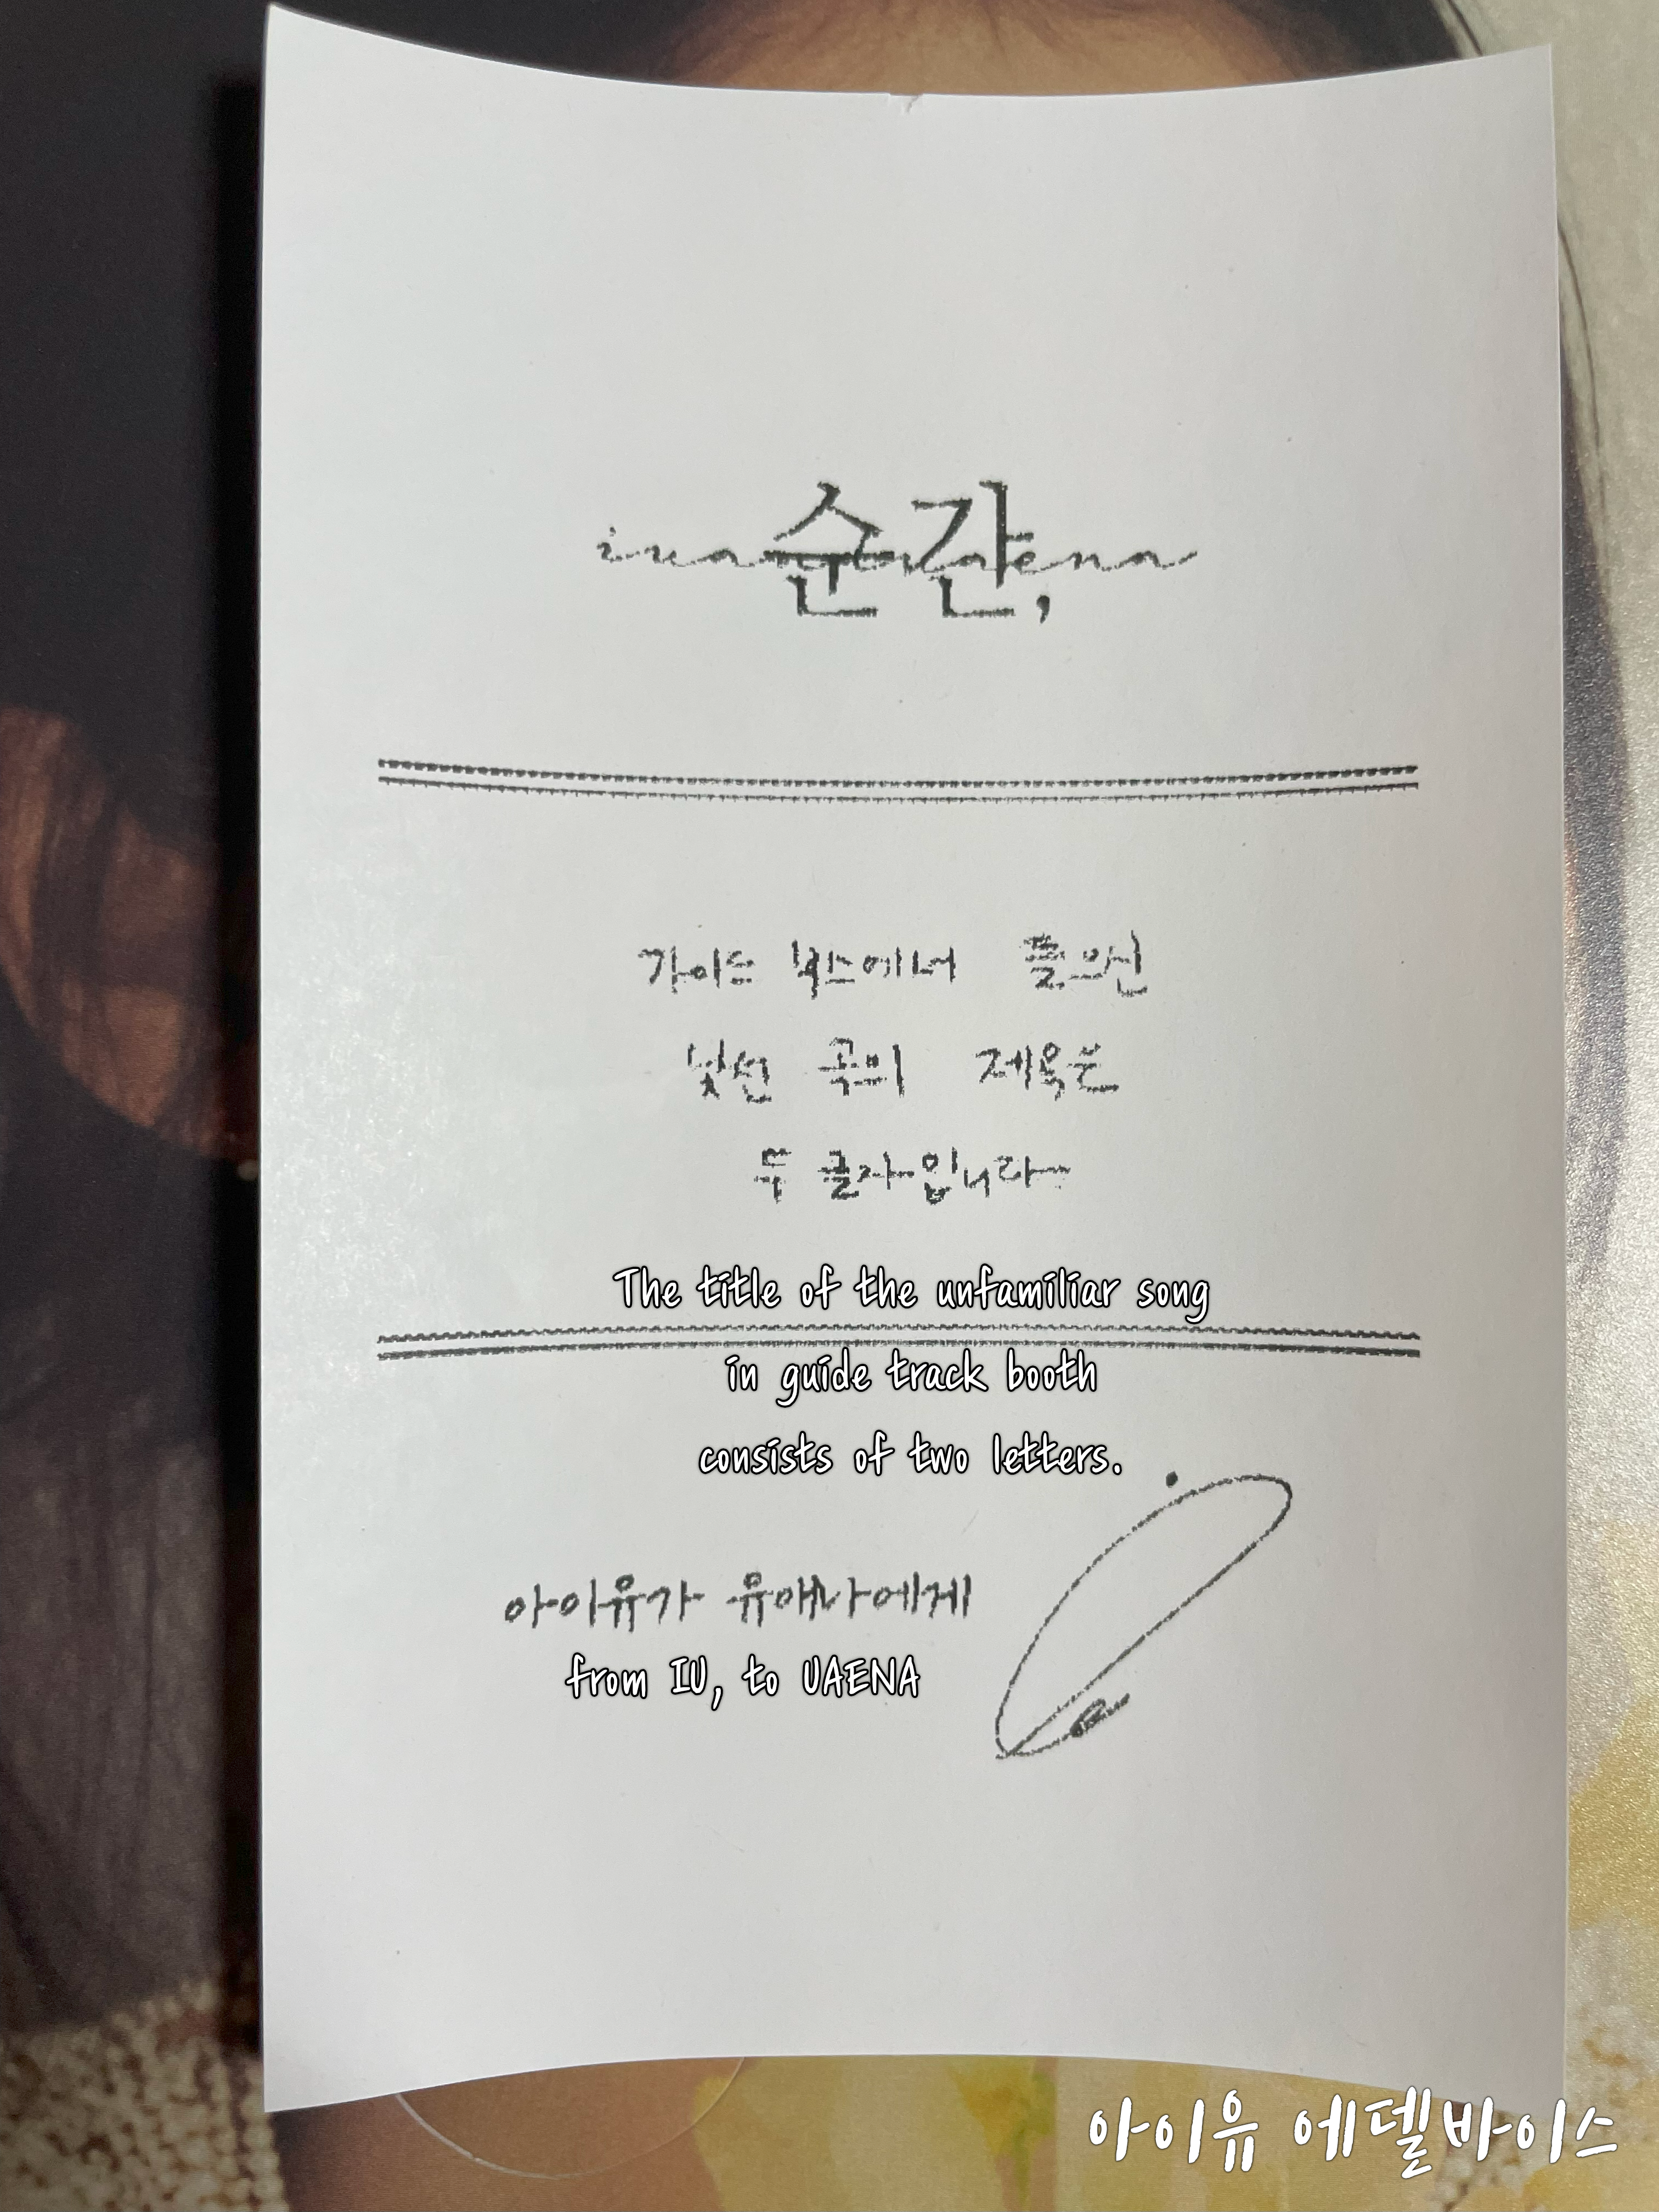 순간,
가이드 부스에서 들으신
낯선 곡의 제목은
두 글자입니다~
The title of the unfamiliar song
in guide track booth
consists of two letters.
아이유가 유애나에게
from IU, to UAENA
아이유 에델바이스